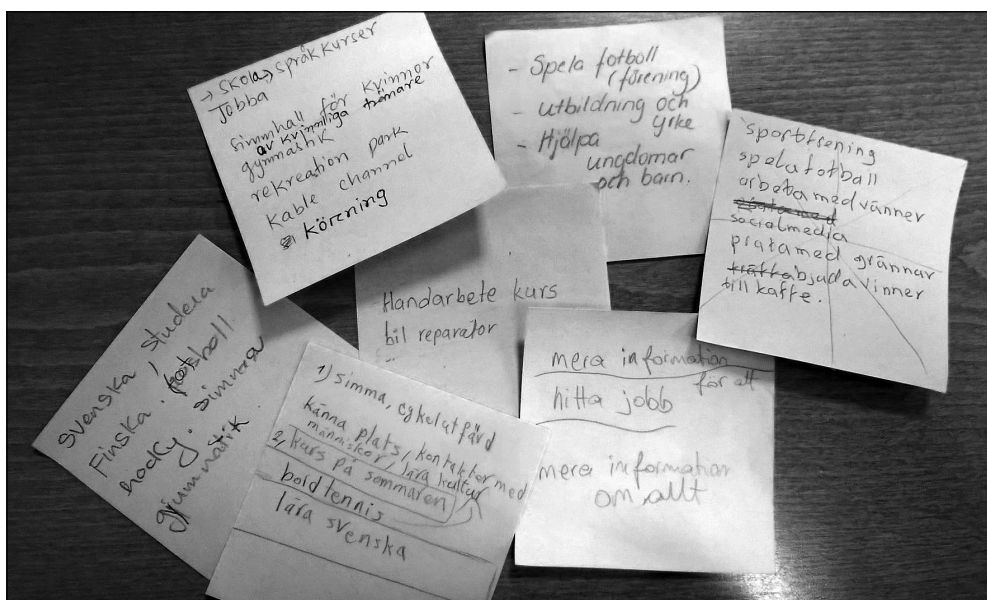 → skola → språkkurser
Jobba
simmhall för kvinnor
av kvinnliga tränare
gymnastik
rekreation park
kable channel
körening
- Spela fotboll
(förening)
- utbildning och
yrke
- Hjälpa
ungdomar
och barn.
sportfrening
spela fotball
arbeta med vänner
socialmedia
prata med grännar
bjuda vinner
till kaffe.
Handarbete kurs
bil reparatör
svenska, studera
Finska. fotsboll.
hocky. simnerar
gjumnatik
1) simma, cykelutfärd
känna plats, kontakter med
människor, lära kultur
2, kurs på sommaren
bordtennis
lära svenska
mera information
för att
hitta jobb
mera information
om allt